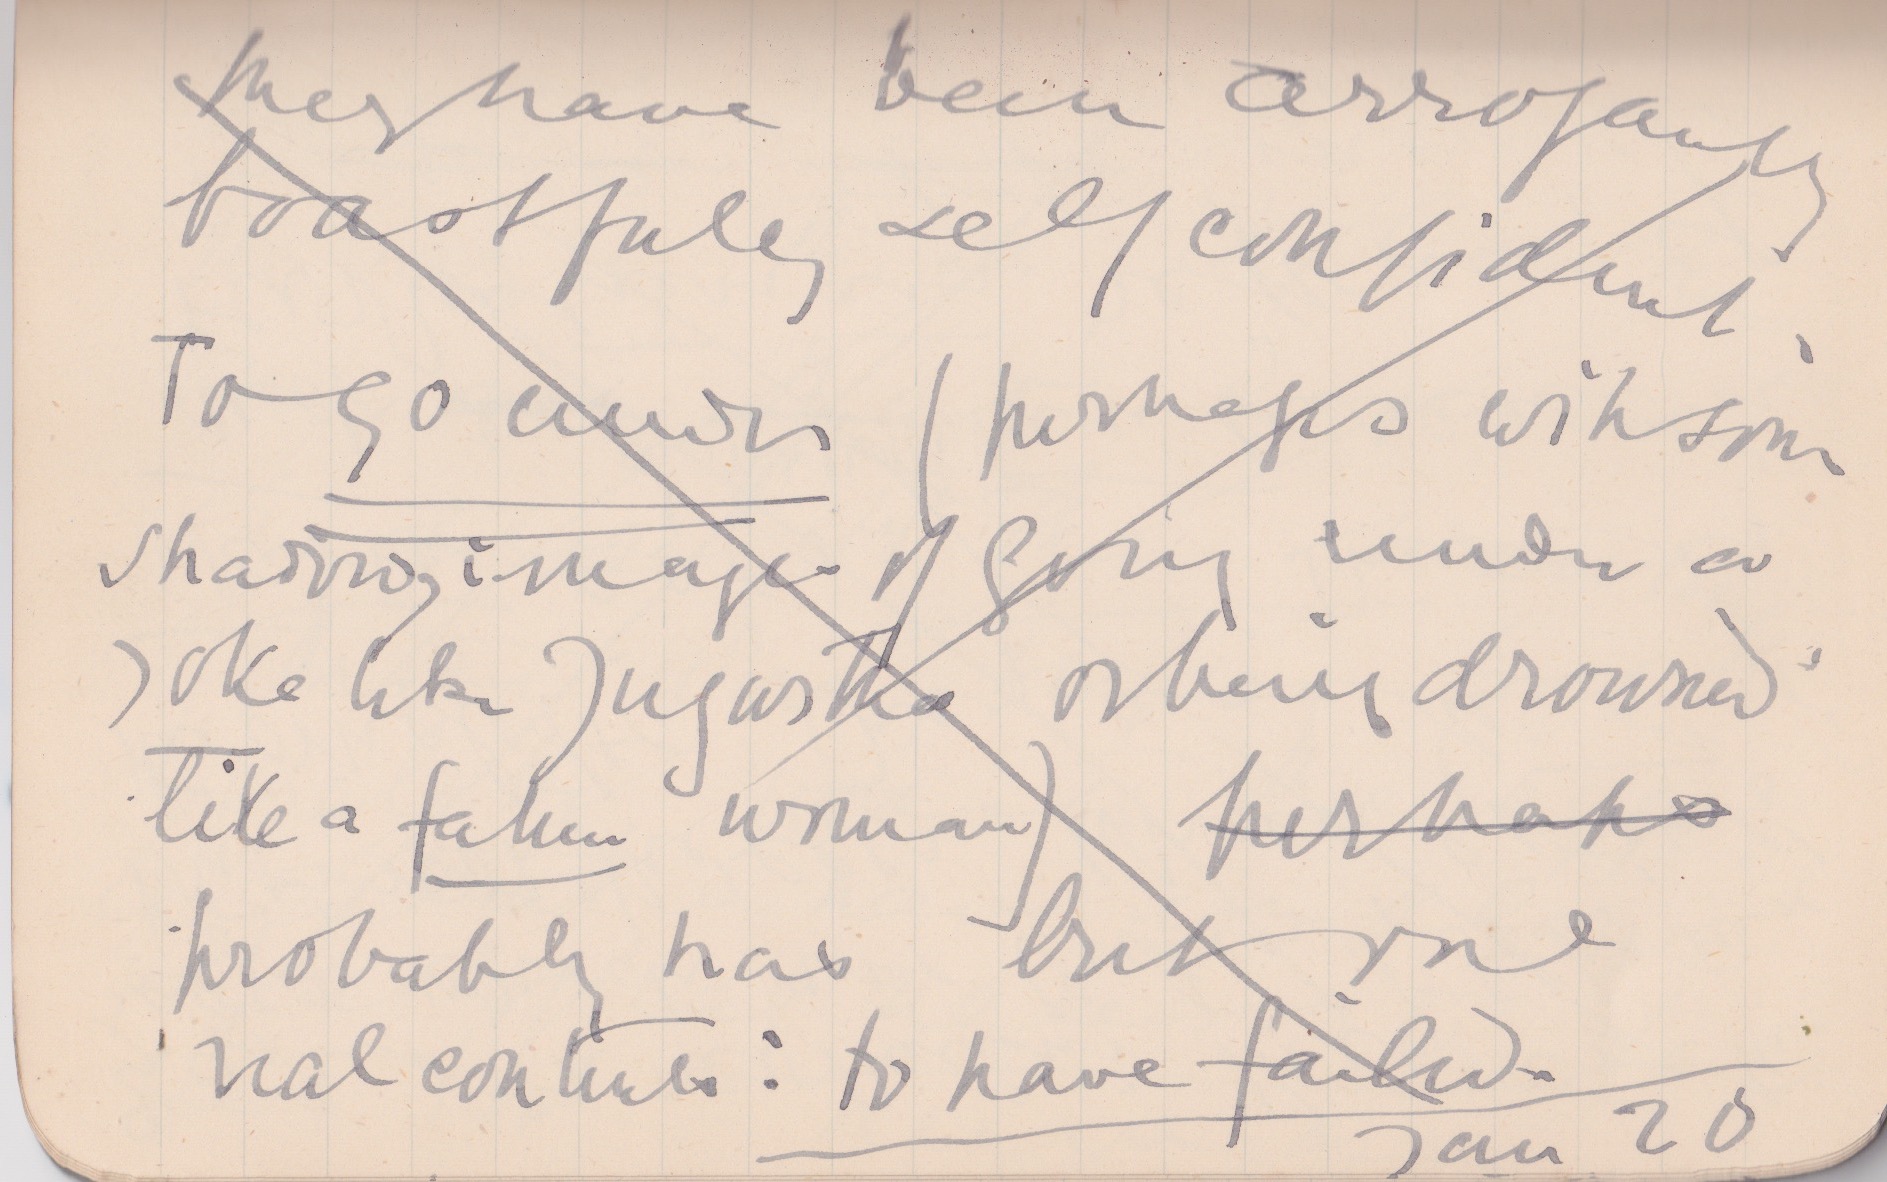 they have been arrogantly
boastfully self confident.
To go under (perhaps with some
shadowy image of going under a
joke like Jugurtha or being drowned
like a fallen woman) perhaps
probably has but one
real content: to have failed.
Jan 20